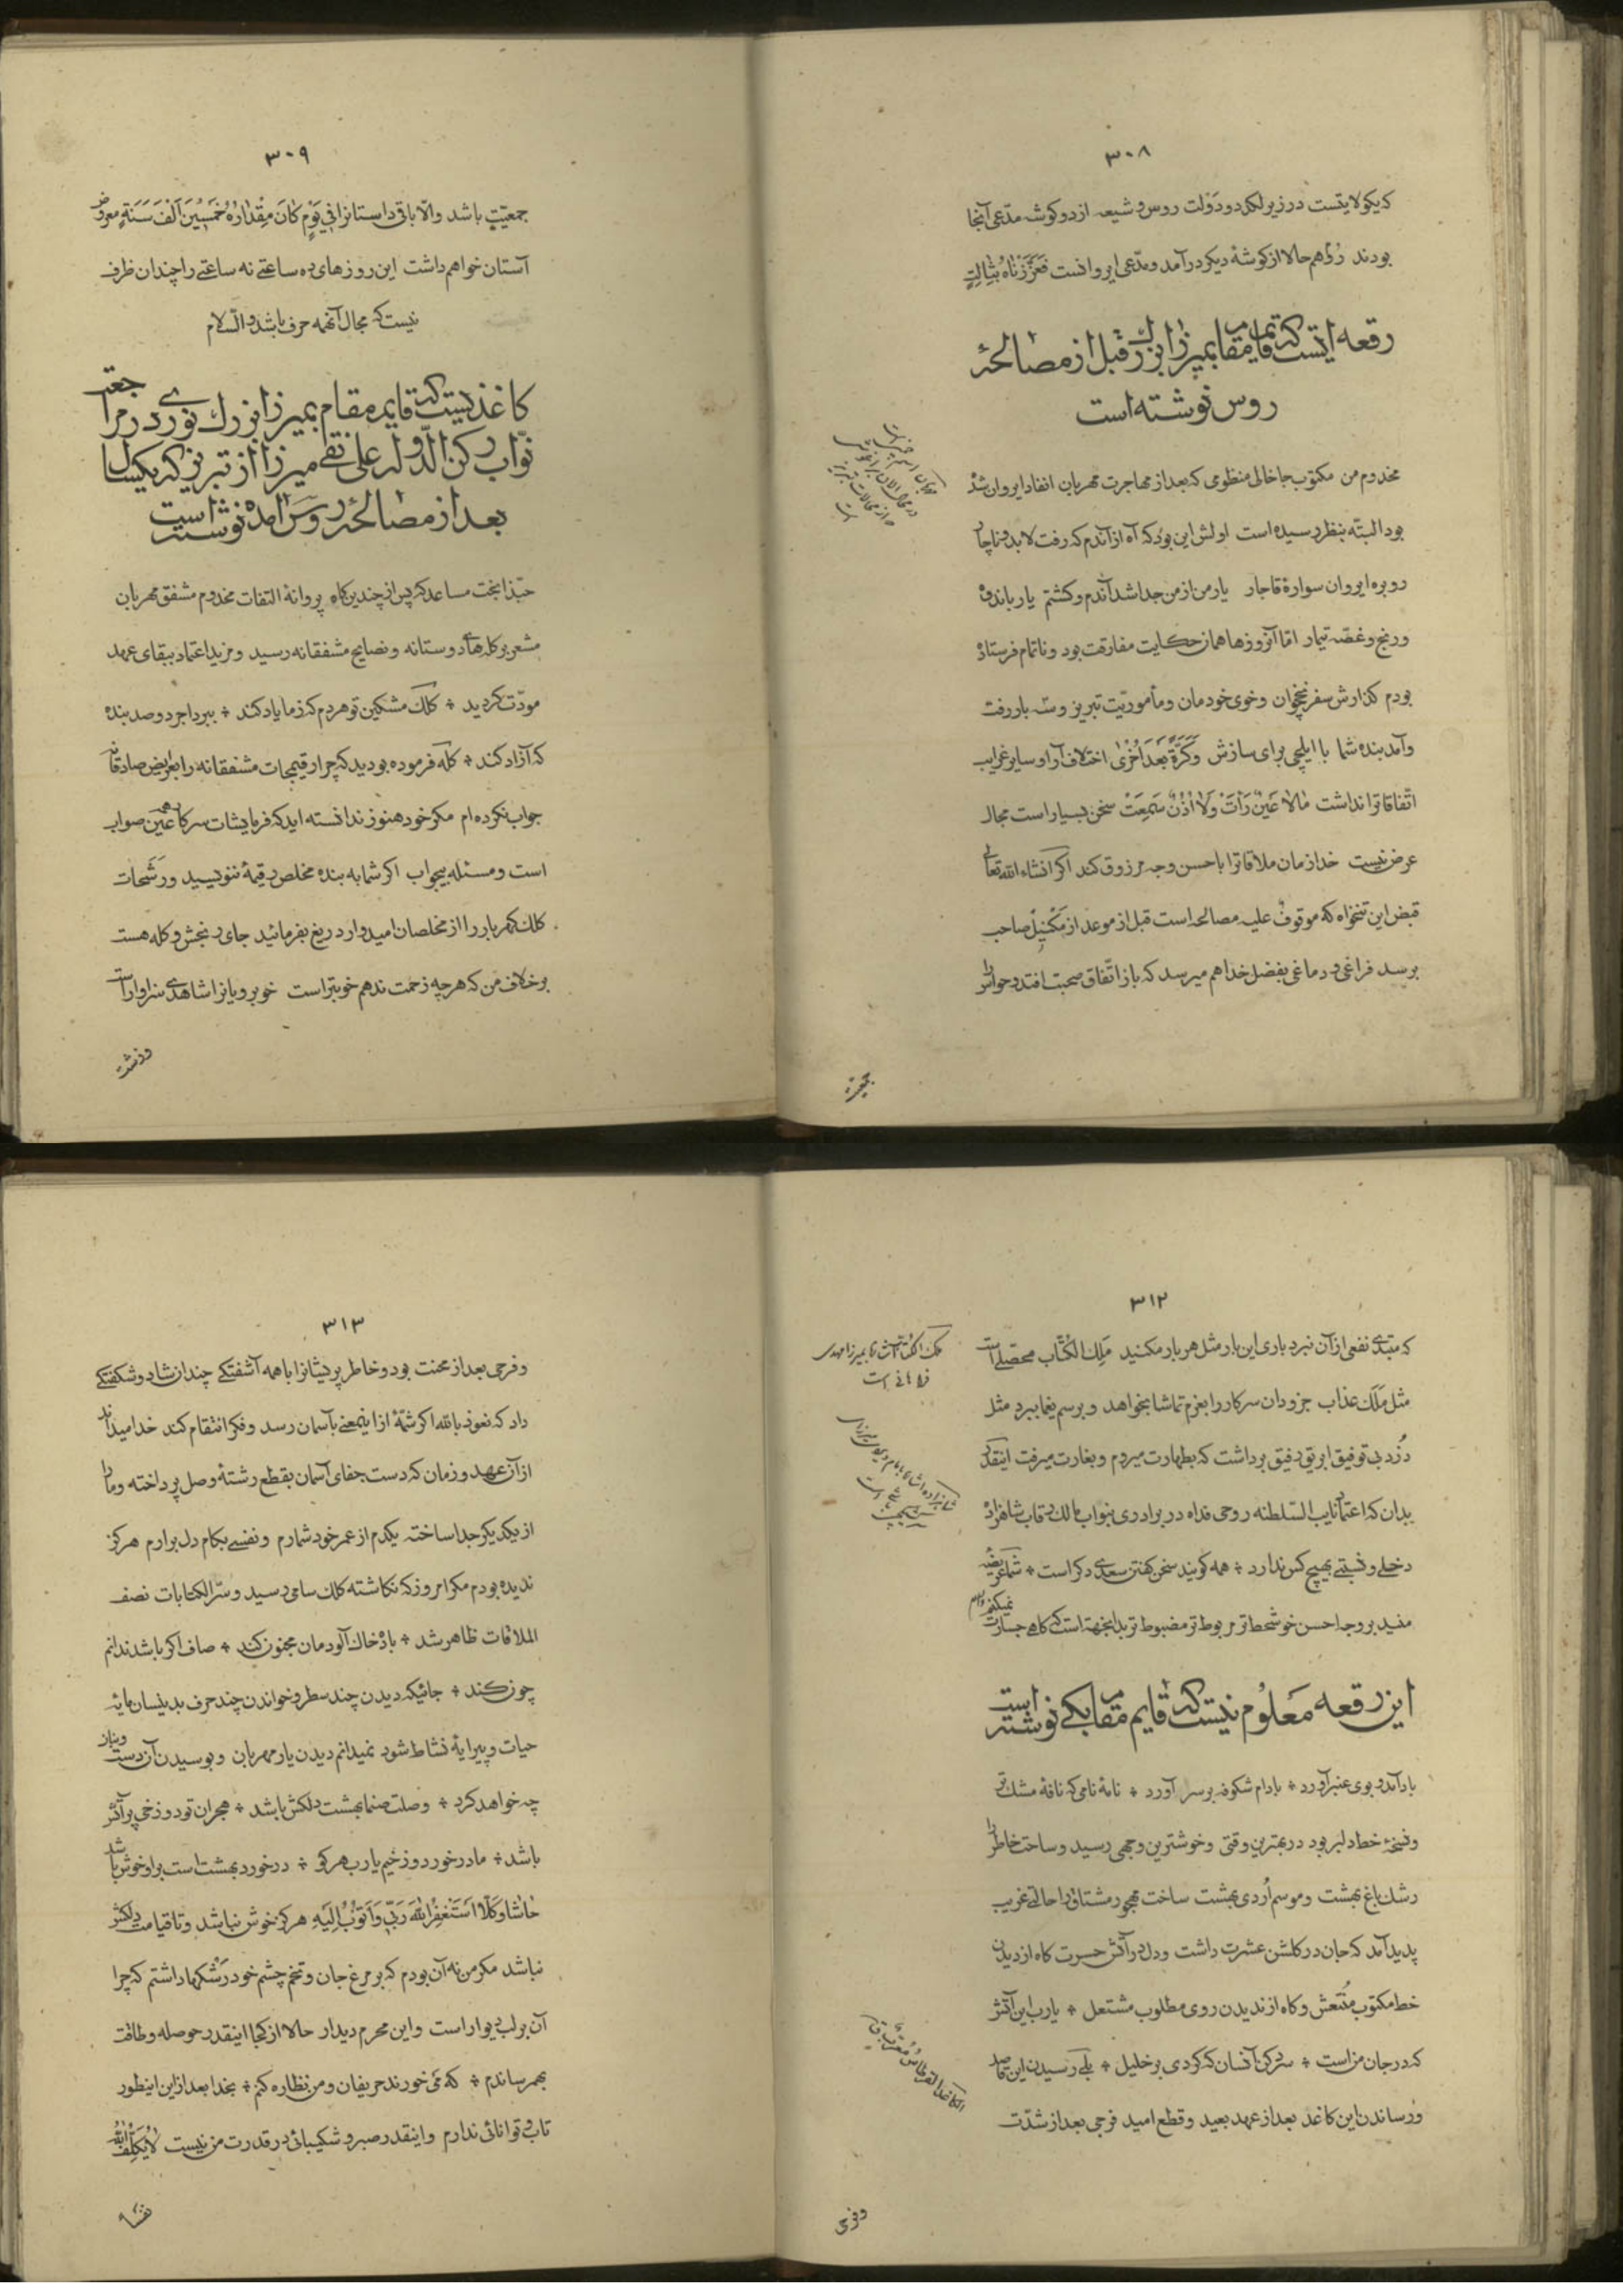 ٣٠٨
که یکولایتست در زیر لکد دو دولت روس و شیعه از دو کوشه مدّعی آنجا
بودند رُؤم هم حالا از کوشهٔ دیکر درآمد و مدّعی ایروانست فَعَزَّزْناهُ بِثالِثٍ
رقعه ایست که قایم مقام بمیرزا بزرك قبل از مصالحهٔ
روس نوشته است
مخدوم من مکتوب جاخالی منظومی که بعد از مهاجرت مهربان انفاد ایروان شده
بود البتّه بنظر رسیده است اولش این بود که آه از آندم که رفت لابد و ناچار
رو بره ایروان سوارهٔ قاجار یار من از من جدا شد آندم و کشتم یار باندوه
و رنج و غصّه تیمار امّا آنروزها همان حکایت مفارقت بود و ناتمام فرستاده
بودم کذارش سفر نخچوان و خوی خودمان و مأموریّت تبریز و سه بار رفت
و آمد بنده شما با ایلچی برای سازش وَکَرَّةً بَعْدَ اُخْرٰی اختلاف آرا و سایر غرایب
اتّفاقات را نداشت مٰالاٰ عَیْنٌ رَأَتْ وَلاٰ اُذُنٌ سَمِعَتْ سخن بسیار است مجال
عرض نیست خدا زمان ملاقات را باحسن وجه مرزوق کند اکر انشاء الله تعالی
قبض این تنخواه که موقوفٌ علیه مصالحه است قبل از موعد از مَکْنِیلْ صاحب
برسد فراغی و دماغی بفضل خدا هم میرسد که باز اتّفاق صحبت افتد و حواس را
جمعیّت
٣٠٩
جمعیّتٍ باشد والّا باقی داستان را فی یَوْمٍ کٰانَ مِقْدٰارُهُ خَمْسینَ اَلْفَ سَنَةٍ معروض
آستان خواهم داشت این روزهای ده ساعتے نه ساعتے را چندان ظرف
نیست که مجال آنهمه حرف باشد و السّلام
کاغذیست که قایم مقام بمیرزا بزرك نوری در مراجعت
نوّاب رکن الدّوله علی نقی میرزا از تبریز که یکسال
بعد از مصالحهٔ روس آمده نوشته است
حبّذا بخت مساعد که پس از چندین کاه پروانهٔ التفات مخدوم مشفق مهربان
مشعر بر کله های دوستانه و نصایح مشفقانه رسید و مزید اعتماد ببقای عهد
مودّت کردید ٭ کلك مشکین تو هردم که ز ما یاد کند ٭ ببرد اجر دوصد بنده
که آزاد کند ٭ کله فرموده بودید که چرا رقیمجات مشفقانه را بعرایض صادقانه
جواب نکرده ام مکر خود هنوز ندانسته اید که فرمایشات سرکار همه عین صواب
است و مسئله بیجواب اکر شما به بنده مخلص رقیمهٔ ننویسید و رشحات
کلك کهربار را از مخلصان امیدوار دریغ بفرمائید جای رنجش و کله هست
برخلاف من که هرچه زحمت ندهم خوبتر است خوبرویان را شاهدی سزاوار است
وزشت
٣١٢
که مبتدی نفعی از آن نبرد باری این بار مثل هر بار مکنید مَلِكُ الکُتّاب محصّلے است
مثل مَلَك عذاب جزودان سرکار را بعزم تماشا بخواهد و برسم یغما ببرد مثل
دُزد بی توفیق ابریق رفیق برداشت که بطهارت میروم و بغارت میرفت اینقدر
بدان که اعتماد نایب السّلطنه روحی فداه در برادری بنواب مالك رقاب شاهزاده
دخلے و نسبتے بهیچ کس ندارد ٭ همه کویند سخن کفتن سعدی دکر است ٭ شما عریضه
مفید بر وجه احسن خوشخط تر مربوط تر مضبوط تر بدانجهة است که کاهے جسارت
نمیکنم والسلام
ملك الکتّاب میرزا مهدی
فراهانی است
این رقعه مَعلوُم نیست که قایم مقام بکی نوشته است
باد آمد و بوی عنبر آورد ٭ بادام شکوفه بر سر آورد ٭ نامهٔ نامی که نافهٔ مشك تر
و نسخهٔ خط دلبر بود در بهترین وقتی و خوشترین وجهی رسید و ساحت خاطر را
رشك باغ بهشت و موسم اُردی بهشت ساخت مهجور مشتاق را حالتے غریب
پدید آمد که جان در کلشن عشرت داشت و دل در آتش حسرت کاه از دیدن
خط مکتوب مُنْتَعش و کاه از ندیدن روی مطلوب مشتعل ٭ یارب این آتش
که در جان من است ٭ سرد کن آنسان که کردی بر خلیل ٭ بلے رسیدن این قاصد
و رساندن این کاغد بعد از عهد بعید و قطع امید فرجی بعد از شدّت
وفرحی
٣١٣
و فرحی بعد از محنت بود و خاطر پریشان را با همه آشفتکے چندان شاد و شکفتکے
داد که نعوذ بالله اکر شمّهٔ از اینمعنے بآسمان رسد و فکر انتقام کند خدا میداند
از آن عهد و زمان که دست جفای آسمان بقطع رشتهٔ وصل پرداخته و ما را
از یکدیکر جدا ساخته یکدم از عمر خود شمارم و نفسے بکام دل برارم هرکز
ندیده بودم مکر امروز که نکاشته کلك سامی رسید و سرّ الکتابات نصف
الملاقات ظاهر شد ٭ بادهٔ خاك آلودمان مجنون کند ٭ صاف اکر باشد ندانم
چون کند ٭ جائیکه دیدن چند سطر و خواندن چند حرف بدینسان مایهٔ
حیات و پیرایهٔ نشاط شود نمیدانم دیدن یار مهربان و بوسیدن آن دست
و بنان
چه خواهد کرد ٭ وصلت صنما بهشت دلکش باشد ٭ هجران تو دوزخی پر آتش
باشد ٭ ما درخور دوزخیم یارب هرکو ٭ درخورد بهشت است بر او خوش باشد
حٰاشا وَکَلّا اَسْتَغْفِرُ اللهَ رَبّی وَاَتوُبُ اِلَیْهِ هرکز خوش نباشد و تا قیامت دلکش
نباشد مکر من نه آن بودم که بر مرغ جان و تخم چشم خود رَشکها داشتم که چرا
آن بر لب دیوار است و این محرم دیدار حالا از کجا اینقدر حوصله و طاقت
بهم رساندم ٭ که مَی خورند حریفان و من نظاره کنم ٭ بخدا بعد از این اینطور
تاب و توانائی ندارم و اینقدر صبر و شکیبائی در قدرت من نیست لاٰیُکَلِّفُ اللهُ
نفسًا